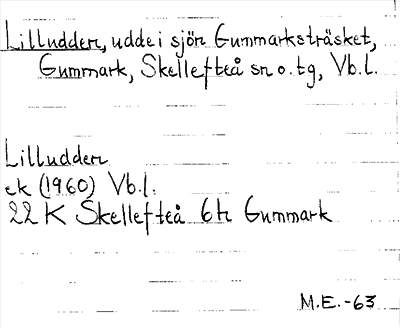 Lilludden, udde i sjön Gummarksträsket,
Gummark, Skellefteå sn o. tg, Vb.l.
Lilludden
ek (1960) Vb.l.
22 K Skellefteå 6h Gummark
M.E.-63